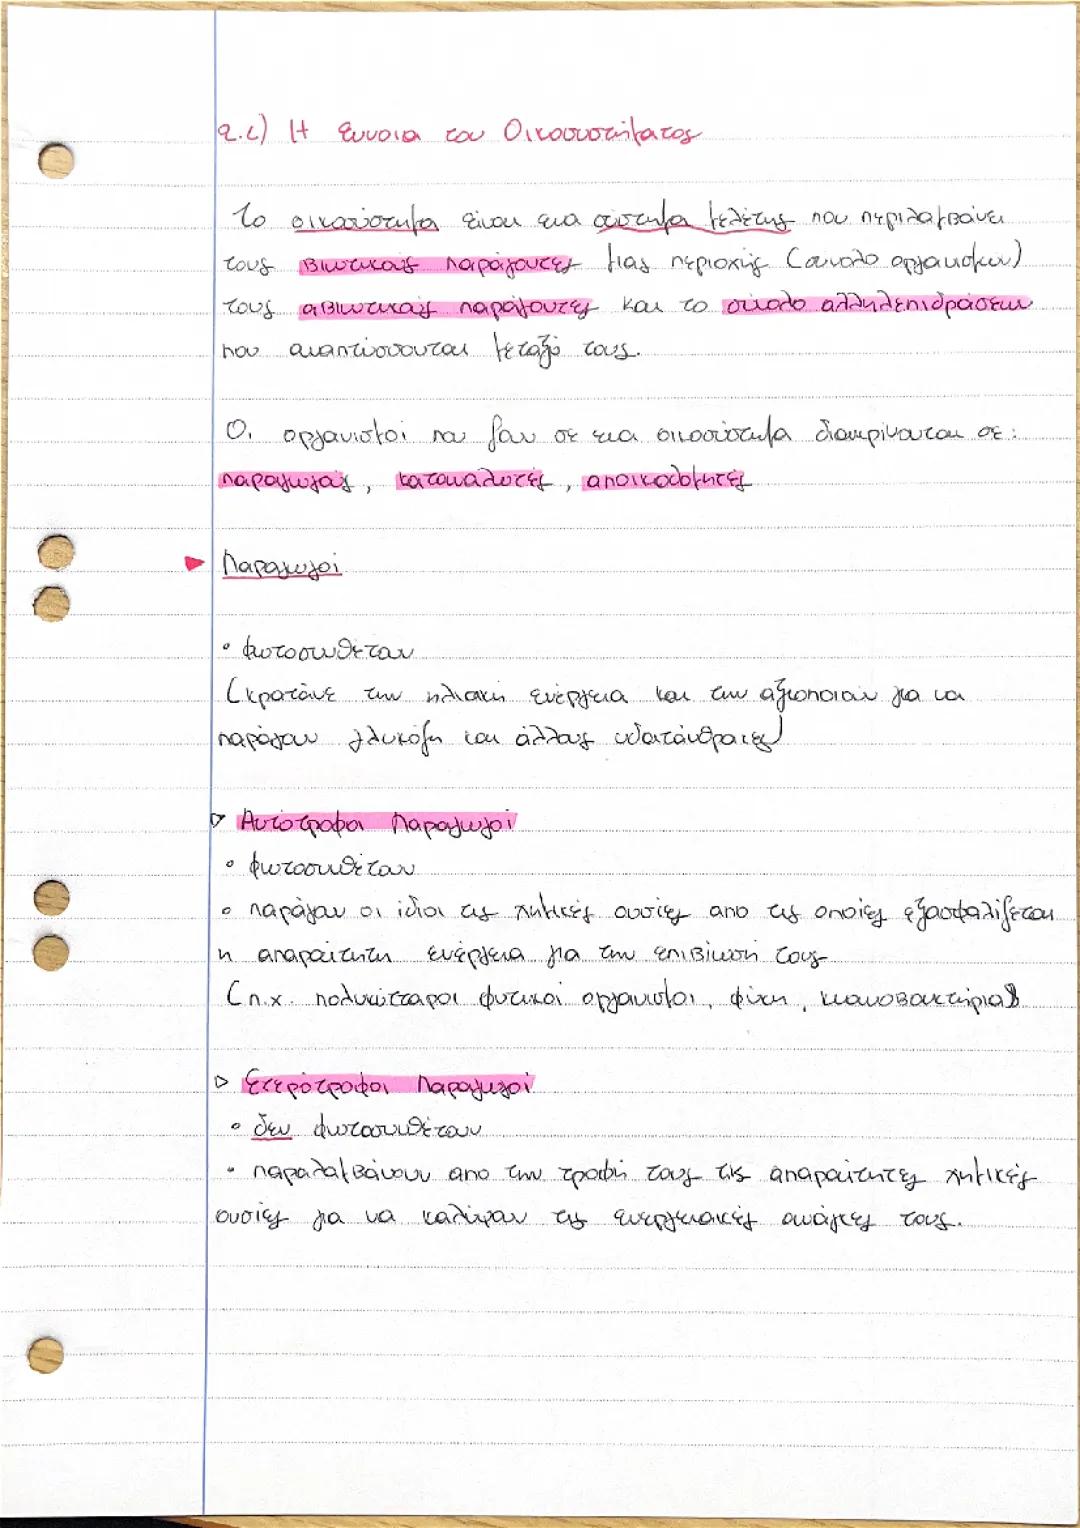 2.1) Η έννοια του Οικοσυστήματος
Το οικοσύστημα είναι ένα σύστημα μελέτης που περιλαμβάνει
τους βιωτικούς παράγοντες μιας περιοχής (σύνολο οργανισμών)
τους αβιωτικούς παράγοντες και το σύνολο αλληλεπιδράσεων
που αναπτύσσονται μεταξύ τους.
Οι οργανισμοί που ζουν σε ένα οικοσύστημα διακρίνονται σε:
παραγωγούς, καταναλωτές, αποικοδομητές
Παραγωγοί
• φωτοσυνθέτουν
(κρατάνε την ηλιακή ενέργεια και την αξιοποιούν για να
παράγουν γλυκόζη και άλλους υδατάνθρακες)
▷ Αυτότροφοι Παραγωγοί
• φωτοσυνθέτουν
• παράγουν οι ίδιοι τις χημικές ουσίες από τις οποίες εξασφαλίζεται
η απαραίτητη ενέργεια για την επιβίωσή τους
(π.χ. πολυκύτταροι φυτικοί οργανισμοί, φύκη, κυανοβακτήρια)
▷ Ετερότροφοι Παραγωγοί
• δεν φωτοσυνθέτουν
• παραλαμβάνουν από την τροφή τους τις απαραίτητες χημικές
ουσίες για να καλύψουν τις ενεργειακές ανάγκες τους.